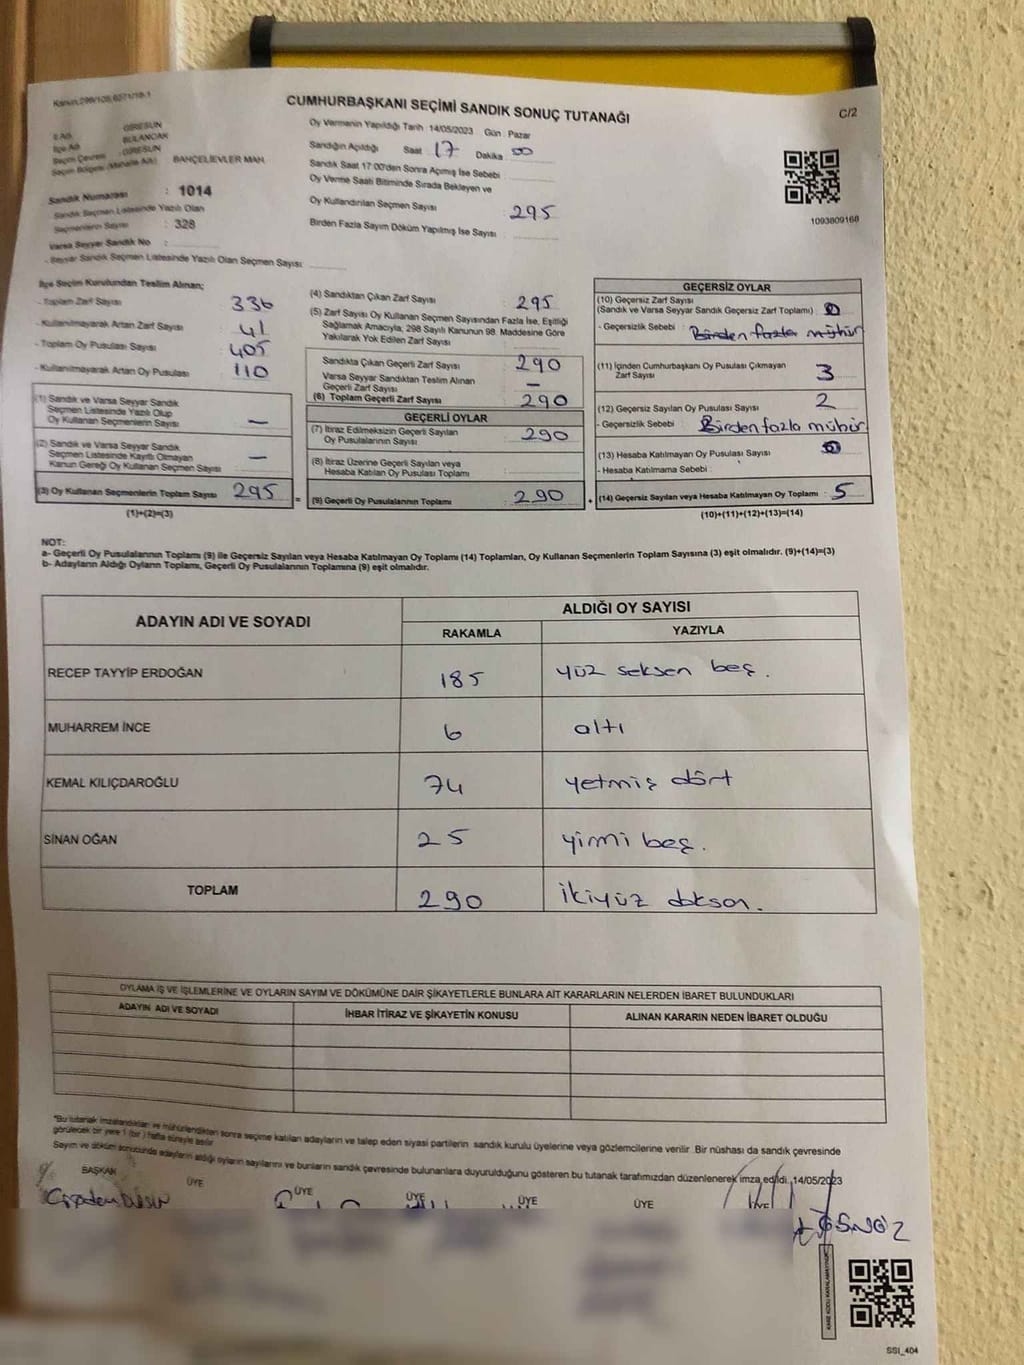 Kanun:298/105,6271/18-1
C/2
CUMHURBAŞKANI SEÇİMİ SANDIK SONUÇ TUTANAĞI
İl Adı : GİRESUN
İlçe Adı : BULANCAK
Seçim Çevresi : GİRESUN
Seçim Bölgesi (Mahalle Adı) : BAHÇELİEVLER MAH.
Sandık Numarası : 1014
Sandık Seçmen Listesinde Yazılı Olan
Seçmenlerin Sayısı : 328
Varsa Seyyar Sandık No :
- Seyyar Sandık Seçmen Listesinde Yazılı Olan Seçmen Sayısı :
Oy Vermenin Yapıldığı Tarih 14/05/2023 Gün : Pazar
Sandığın Açıldığı Saat 17 Dakika 00
Sandık Saat 17:00'den Sonra Açılmış İse Sebebi :
Oy Verme Saati Bitiminde Sırada Bekleyen ve
Oy Kullandırılan Seçmen Sayısı : 295
Birden Fazla Sayım Döküm Yapılmış İse Sayısı :
1093809168
İlçe Seçim Kurulundan Teslim Alınan;
- Toplam Zarf Sayısı 336
- Kullanılmayarak Artan Zarf Sayısı : 41
- Toplam Oy Pusulası Sayısı 405
- Kullanılmayarak Artan Oy Pusulası : 110
(1) Sandık ve Varsa Seyyar Sandık
Seçmen Listesinde Yazılı Olup
Oy Kullanan Seçmenlerin Sayısı : –
(2) Sandık ve Varsa Seyyar Sandık
Seçmen Listesinde Kayıtlı Olmayan
Kanun Gereği Oy Kullanan Seçmen Sayısı : –
(3) Oy Kullanan Seçmenlerin Toplam Sayısı : 295
(1)+(2)=(3)
(4) Sandıktan Çıkan Zarf Sayısı : 295
(5) Zarf Sayısı Oy Kullanan Seçmen Sayısından Fazla İse, Eşitliği
Sağlamak Amacıyla, 298 Sayılı Kanunun 98. Maddesine Göre
Yakılarak Yok Edilen Zarf Sayısı :
Sandıkta Çıkan Geçerli Zarf Sayısı : 290
Varsa Seyyar Sandıktan Teslim Alınan
Geçerli Zarf Sayısı : –
(6) Toplam Geçerli Zarf Sayısı : 290
GEÇERLİ OYLAR
(7) İtiraz Edilmeksizin Geçerli Sayılan
Oy Pusulalarının Sayısı : 290
(8) İtiraz Üzerine Geçerli Sayılan veya
Hesaba Katılan Oy Pusulası Toplamı :
=
(9) Geçerli Oy Pusulalarının Toplamı : 290
+
GEÇERSİZ OYLAR
(10) Geçersiz Zarf Sayısı
(Sandık ve Varsa Seyyar Sandık Geçersiz Zarf Toplamı) : 0
- Geçersizlik Sebebi : Birden fazla mühür
(11) İçinden Cumhurbaşkanı Oy Pusulası Çıkmayan
Zarf Sayısı : 3
(12) Geçersiz Sayılan Oy Pusulası Sayısı : 2
- Geçersizlik Sebebi : Birden fazla mühür
(13) Hesaba Katılmayan Oy Pusulası Sayısı : 0
- Hesaba Katılmama Sebebi :
(14) Geçersiz Sayılan veya Hesaba Katılmayan Oy Toplamı : 5
(10)+(11)+(12)+(13)=(14)
NOT:
a- Geçerli Oy Pusulalarının Toplamı (9) ile Geçersiz Sayılan veya Hesaba Katılmayan Oy Toplamı (14) Toplamları, Oy Kullanan Seçmenlerin Toplam Sayısına (3) eşit olmalıdır. (9)+(14)=(3)
b- Adayların Aldığı Oyların Toplamı, Geçerli Oy Pusulalarının Toplamına (9) eşit olmalıdır.
ADAYIN ADI VE SOYADI
ALDIĞI OY SAYISI
RAKAMLA YAZIYLA
RECEP TAYYİP ERDOĞAN 185 yüz seksen beş.
MUHARREM İNCE 6 altı
KEMAL KILIÇDAROĞLU 74 yetmiş dört
SİNAN OĞAN 25 yirmi beş.
TOPLAM 290 ikiyüz doksan.
OYLAMA İŞ VE İŞLEMLERİNE VE OYLARIN SAYIM VE DÖKÜMÜNE DAİR ŞİKAYETLERLE BUNLARA AİT KARARLARIN NELERDEN İBARET BULUNDUKLARI
ADAYIN ADI VE SOYADI İHBAR İTİRAZ VE ŞİKAYETİN KONUSU ALINAN KARARIN NEDEN İBARET OLDUĞU
*Bu tutanak imzalandıktan ve mühürlendikten sonra seçime katılan adayların ve talep eden siyasi partilerin sandık kurulu üyelerine veya gözlemcilerine verilir. Bir nüshası da sandık çevresinde
görülecek bir yere 1 (bir) hafta süreyle asılır.
Sayım ve döküm sonucunda adayların aldığı oyların sayılarını ve bunların sandık çevresinde bulunanlara duyurulduğunu gösteren bu tutanak tarafımızdan düzenlenerek imza edildi. 14/05/2023
BAŞKAN ÜYE ÜYE ÜYE ÜYE ÜYE ÜYE
SSI_404